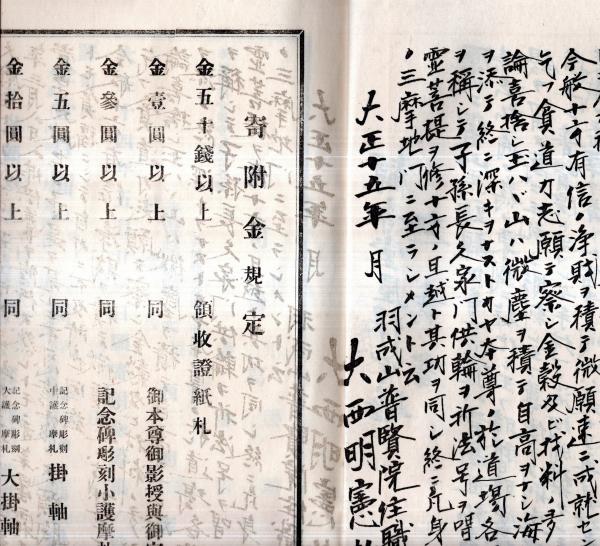 今般十方有信ノ浄財ヲ積テ微願速ニ成就セン
乞フ貧道カ志願ヲ察シ金穀及ビ材料ノ多
論喜捨シ玉ハヾ山ハ微塵ヲ積テ自高ヲナシ海
ヲ添テ終ニ深キヲナス
本尊ノ於道場各
ヲ稱シテ子孫長久家門供輪ヲ祈法号ヲ唱
靈菩提ヲ修十方ノ旦越ト其功ヲ同シ終ニ凢身
ノ三摩地門ニ至ランメント云
大正十五年 月
羽成山普賢院住職
大西明憲
寄附金規定
金五十錢以上 領收證紙札
金壹圓以上 同 御本尊御影授與御
金參圓以上 同 記念碑彫刻小護摩札
金五圓以上 同 記念碑彫刻中護摩札 掛軸
金拾圓以上 同 記念碑彫刻大護摩札 大掛軸